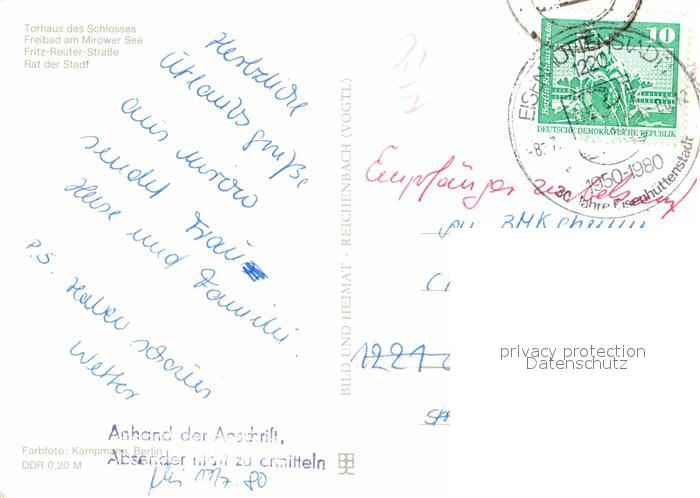 Torhaus des Schlosses
Freibad am Mirower See
Fritz-Reuter-Straße
Rat der Stadt
Herbstliche
Urlaubsgrüße
aus Mirow
sendet Frau
Heise und Familie.
P.S. Haben schönes
Wetter
Farbfoto: Kampmann, Berlin
DDR 0,20 M
Anhand der Anschrift,
Absender nicht zu ermitteln
11/7. 80
BILD UND HEIMAT · REICHENBACH (VOGTL)
10
Berlin·Rathausstraße
DEUTSCHE DEMOKRATISCHE REPUBLIK
EISENHÜTTENSTADT
1220
-8.-7.
1950-1980
30 Jahre Eisenhüttenstadt
Empfänger unbekannt
1221
privacy protection
Datenschutz